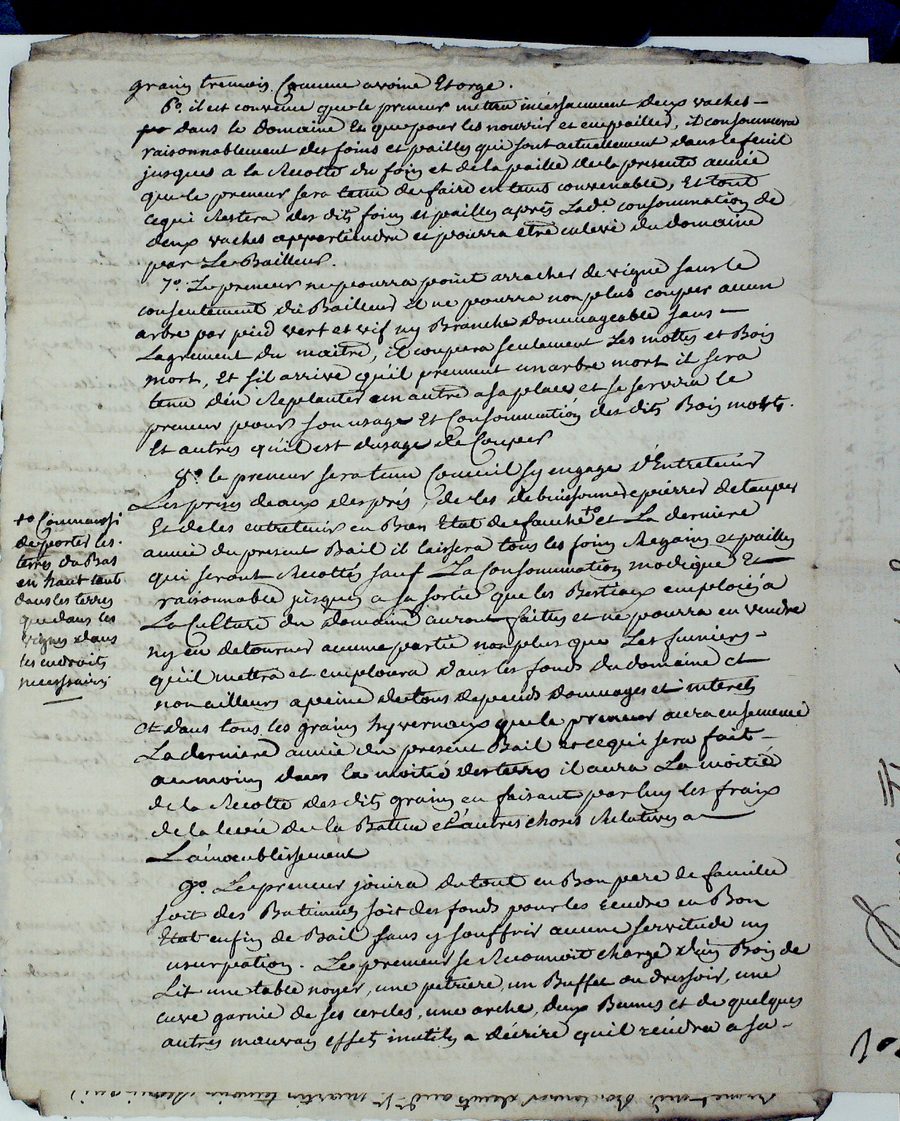 grains tremois. Comme avoine Et orge.
6º. il est convenu que le preneur mettra incessamment deux vaches –
dans le domaine Et que pour les nourrir et empailler, il consommera
raisonnablement des foins et pailles qui sont actuellement dans le fenil
jusques a la Recolte du foin et de la paille de la presente année
que le preneur sera tenu de faire en tems convenable, Et tout
ce qui Restera des dits foins et pailles après Lade. consommation de
deux vaches appartiendra et pourra être enlevé du domaine
par Le Bailleur.
7º. Le preneur ne pourra point arracher de vigne sans le
consentement du Bailleur Et ne pourra non plus couper aucun
arbre par pied vert et vif ny Branche dommageable sans –
Lagrement du maitre, il coupera seulement Les mottes et Bois
mort, Et sil arrive qu'il prennent un arbre mort il sera
tenu d'en Replanter un autre a sa place et se servira le
preneur pour son usage Et Consommation des dits Bois morts.
Et autres qu'il est d'usage de Couper
8º. le preneur sera tenu Comme il sy engage d'Entretenir
Les prises deaux des prés, de les debuissonner epierrer detauper
Et de les entretenir en Bon Etat de fauche +º et La derniere
année du present Bail il laissera tous les foins Regains et pailles
qui seront Recoltés sauf La Consommation modique Et
raisonnable jusques a sa sortie que les Bestiaux emploiés a
La Culture du Domaine auront faittes et ne pourra en vendre
ny en detourner aucune partie non plus que Les fumiers –
qu'il mettra et emploiera dans les fonds du domaine et
non ailleurs a peine de tous depends dommages et interets
Et dans tous les grains hyvernaux que le preneur aura ensemencé
La derniere année du present Bail et ce qui sera fait –
au moins dans la moitié des terres il aura La moitié
de la Recolte des dits grains en faisant par luy les frais
de la levée de la Batue et d'autres choses Relatives a –
L'ameublissement
9º. Le preneur jouira du tout en Bon pere de famille
soit des Batiments soit des fonds pour les Rendre en Bon
Etat en fin de Bail sans y souffrir aucune servitude ny
usurpation. Le preneur se Reconnoit chargé d'un Bois de
Lit une table noyer, une petriere, un Buffet ou dressoir, une
cuve garnie de ses cercles, une arche, deux Bennes et de quelques
autres mauvais effets inutiles a décrire qu'il rendra a sa –
+º Comme aussi
de porter les
terres du Bas
en haut tant
dans les terres
que dans les
vignes dans
les endroits
necessaires